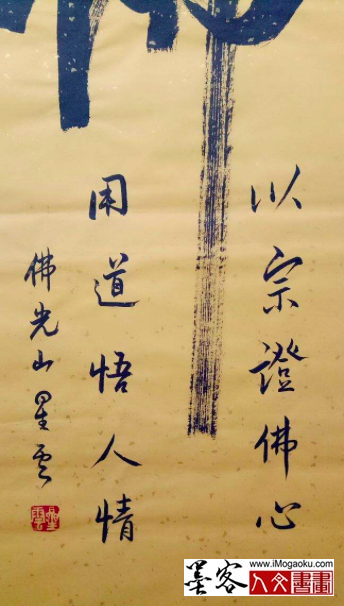 佛
以宗證佛心
用道悟人情
佛光山星雲
星雲
墨客
www.iMogaoku.com
人文書畫